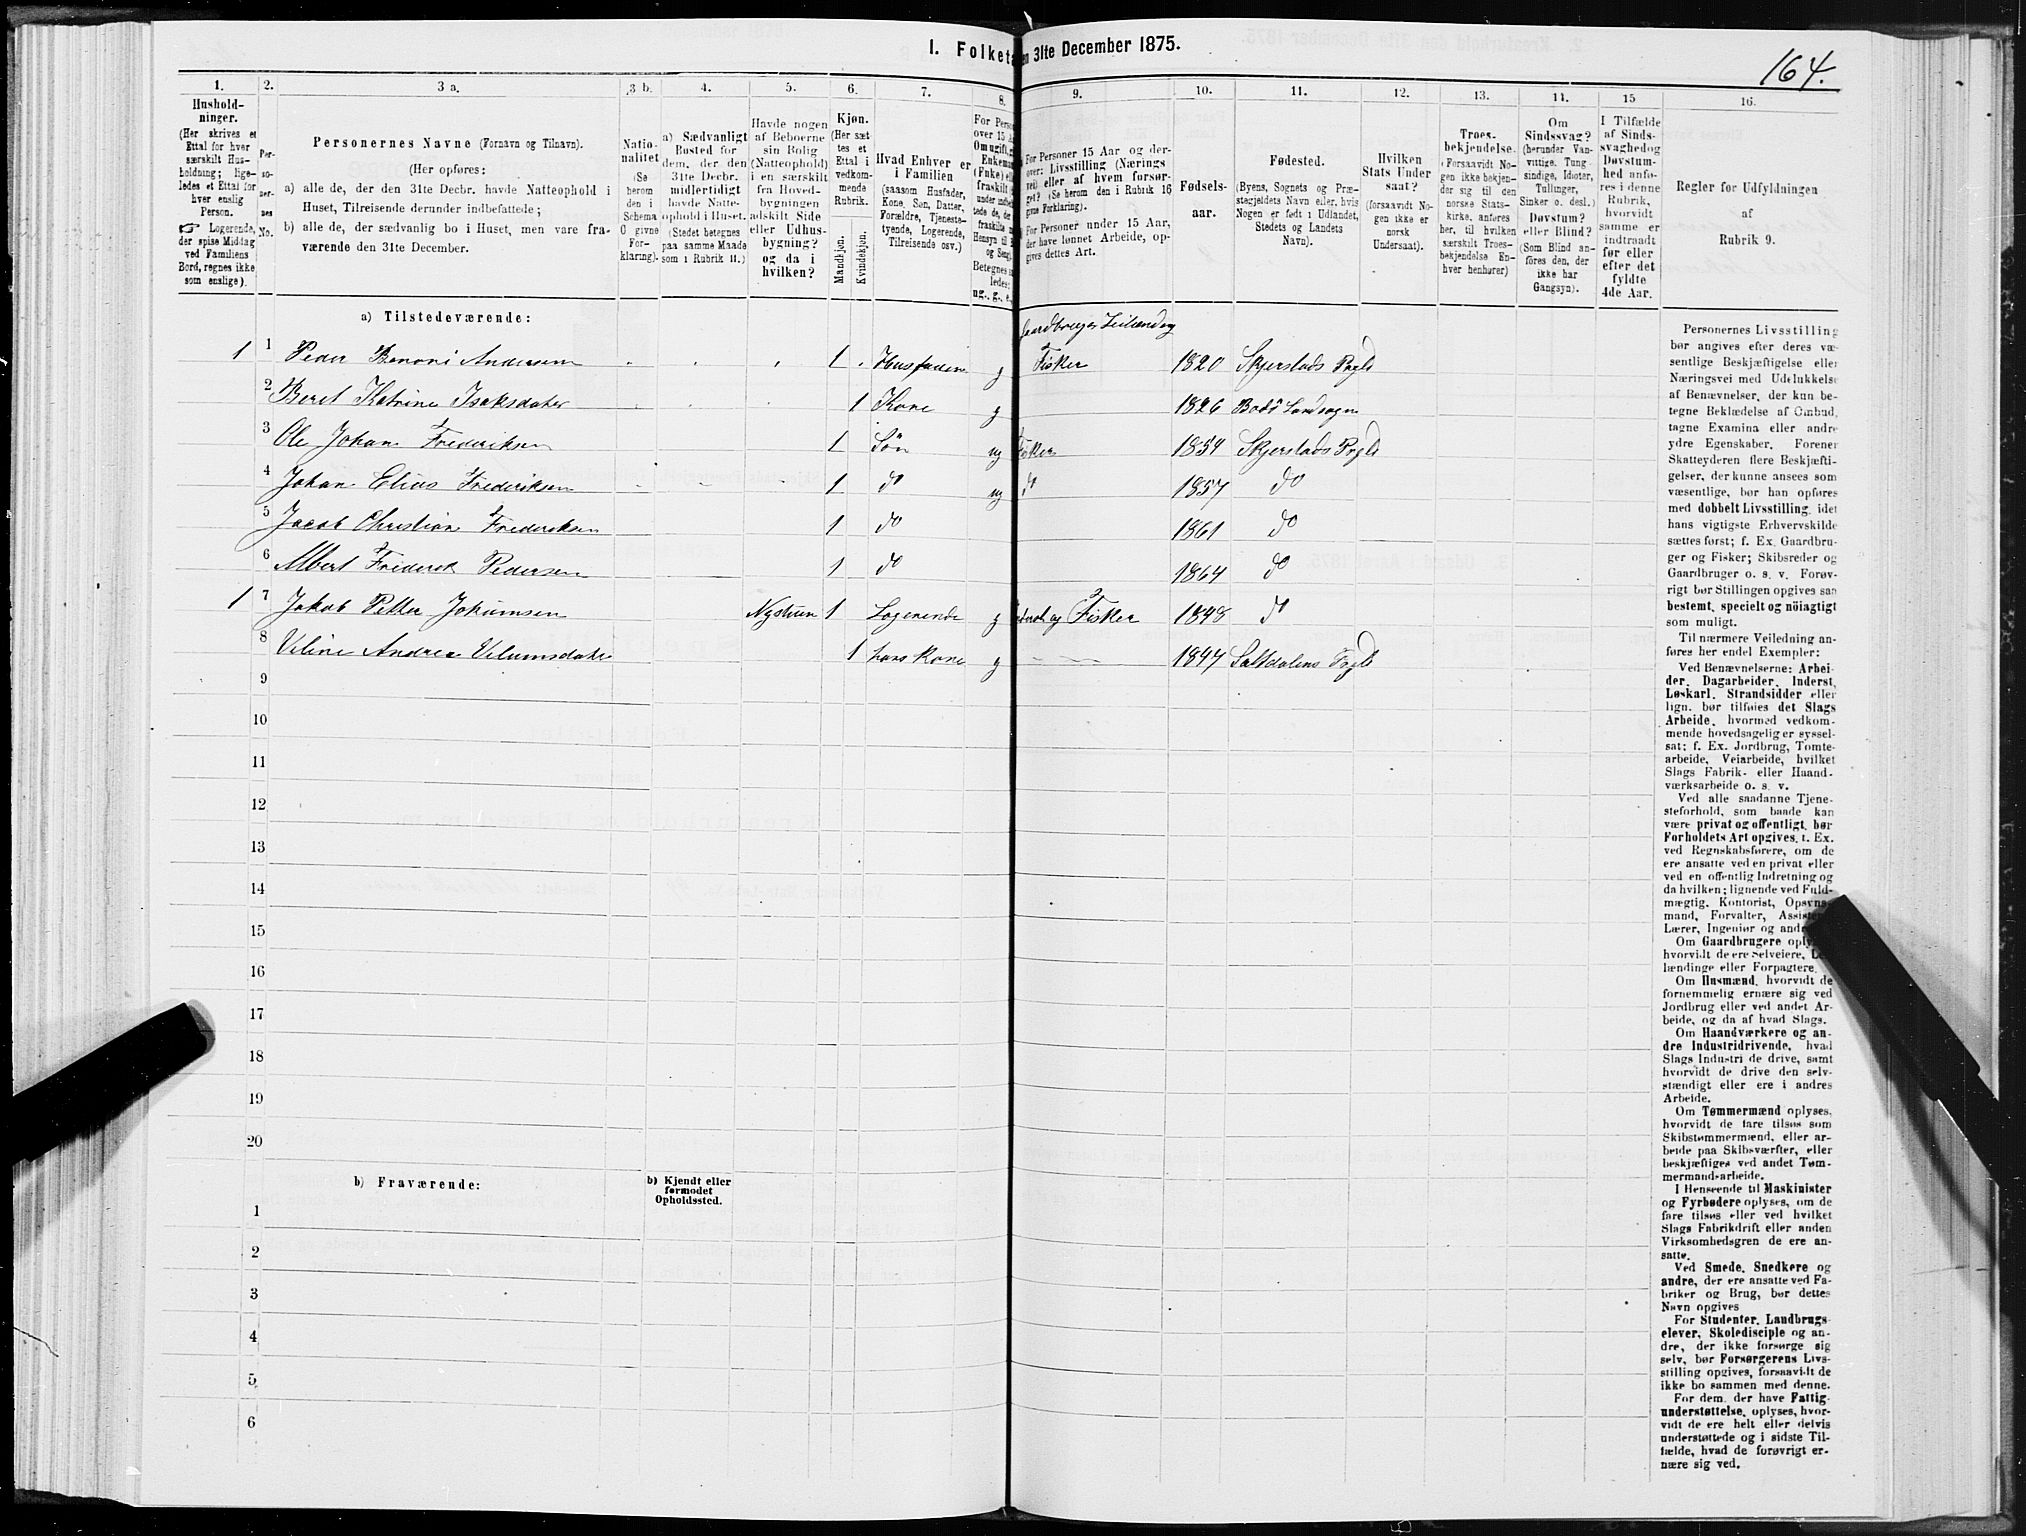 I. Folketæ
en 31te December 1875.
164.
1.
2.
3 a.
3 b.
4.
5.
6.
7.
8.
9.
10.
11.
12.
13.
14.
15
16.
Hushold-
ninger.
(Her skrives et
Ettal for hver
særskilt Hus-
holdning; lige-
ledes et Ettal for
hver enslig
Person.
☞ Logerende,
der spise Middag
ved Familiens
Bord, regnes ikke
som enslige).
Per-
so-
ner-
nes
No.
Personernes Navne (Fornavn og Tilnavn).
(Her opføres:
a) alle de, der den 31te Decbr. havde Natteophold i
Huset, Tilreisende derunder indbefattede;
b) alle de, der sædvanlig bo i Huset, men vare fra-
værende den 31te December.
Natio-
nalitet
(Se
herom
den i
Schema
O givne
For-
klaring).
a) Sædvanligt
Bosted for
dem, der den
31te Decbr.
midlertidigt
havde Natte-
ophold i Huset.
(Stedet betegnes
paa samme Maade
som i Rubrik 11.)
Havde nogen
af Beboerne
sin Bolig
(Natteophold)
i en særskilt
fra Hoved-
bygningen
adskilt Side
eller Udhus-
bygning?
og da i
hvilken?
Kjøn.
(Her sæt-
tes et
Ettal i
vedkom-
mende
Rubrik.
Mandkjøn.
Kvindekjøn.
Hvad Enhver er
i Familien
(saasom Husfader,
Kone, Søn, Datter,
Forældre, Tjeneste-
tyende, Logerende,
Tilreisende osv.)
For Perso
over 15 A
Om ugift, g
Enkema
(Enke) el
fraskilt
under indbe
tede de, de
fraskilte
Hensyn til B
og Seng
Betegnes s
ledes:
ug., g., e.,
For Personer 15 Aar og der-
over: Livsstilling (Nærings
vei) eller af hvem forsør-
get? (Se herom den i Rubrik 16
givne Forklaring).
For Personer under 15 Aar,
der have lønnet Arbeide, op-
gives dettes Art.
Fødsels-
aar.
Fødested.
(Byens, Sognets og Præ-
stegjeldets Navn eller, hvis
Nogen er født i Udlandet,
Stedets og Landets
Navn).
Hvilken
Stats Under
saat?
(forsaavidt No-
gen ikke er
norsk
Undersaat).
Troes-
bekjendelse.
(Forsaavidt No-
gen ikke bekjen-
der sig til den
norske Stats-
kirke, anføres
her, til hvilken
særskilt Troes-
bekjendelse En-
hver henhører)
Om
Sindssvag?
(herunder Van-
vittige, Tung
sindige, Idioter,
Tullinger,
Sinker o. desl.)
Døvstum?
eller Blind?
(Som Blind an-
føres den, der
ikke har
Gangsyn).
I Tilfælde
af Sinds-
svaghed og
Døvstum-
hed anfø-
res i denne
Rubrik,
hvorvidt
samme er
indtraadt
før eller
efter det
fyldte
4de Aar.
Regler for Udfyldningen
af
Rubrik 9.
a) Tilstedeværende:
1 1 Peder Benoni Andersen 1 Husfader g Gaardbruger Leilænding Fisker 1820 Skjerstads Pgld
2 Beret Katrine Isaksdatter 1 Kone g 1826 Bodø Landsogn
3 Ole Johan Frederiksen 1 Søn ug Fisker 1854 Skjerstads Pgld
4 Johan Elias Frederiksen 1 do ug do 1857 do
5 Jacob Christian Frederiksen 1 do 1861 do
6 Albert Frederik Pedersen 1 do 1864 do
1 7 Jakob Petter Jokumsen Nystuen 1 Logerende g og Fisker 1848 do
8 Veline Andrea Velumsdatter 1 hans Kone g 1847 Saltdalens Pgld
9
10
11
12
13
14
15
16
17
18
19
20
b) Fraværende:
b) Kjendt eller
formodet
Opholdssted.
1
2
3
4
5
6
Personernes Livsstilling
bør angives efter deres væ-
sentlige Beskjæftigelse eller
Næringsvei med Udelukkelse
af Benævnelser, der kun be-
tegne Beklædelse af Ombud,
tagne Examina eller andre
ydre Egenskaber. Forener
Skatteyderen flere Beskjæfti-
gelser, der kunne ansees som
væsentlige, bør han opføres
med dobbelt Livsstilling, idet
hans vigtigste Erhvervskilde
sættes først; f. Ex. Gaardbru-
ger og Fisker; Skibsreder og
Gaardbruger o. s. v. Forøv-
rigt bør Stillingen opgives saa
bestemt, specielt og nøiagtigt
som muligt.
Til nærmere Veiledning an-
føres her endel Exempler:
Ved Benævnelserne: Arbei-
der, Dagarbeider, Inderst,
Løskarl, Strandsidder eller
lign. bør tilføies det Slags
Arbeide, hvormed vedkom-
mende hovedsagelig er syssel-
sat; f. Ex. Jordbrug, Tomte-
arbeide, Veiarbeide, hvilket
Slags Fabrik- eller Haand-
værksarbeide o. s. v.
Ved alle saadanne Tjene-
steforhold, som baade kan
være privat og offentligt, bør
Forholdets Art opgives, f. Ex.
ved Regnskabsførere, om de
ere ansatte ved en privat eller
ved en offentlig Indretning og
da hvilken; lignende ved Fuld-
mægtig, Kontorist, Opsyns-
mand, Forvalter, Assistent,
Lærer, Ingeniør og andre.
Om Gaardbrugere oplyses,
hvorvidt de ere Selveiere, Lei-
lændinge eller Forpagtere.
Om Husmænd, hvorvidt de
fornemmelig ernære sig ved
Jordbrug eller ved andet Ar-
beide, og da af hvad Slags.
Om Haandværkere og an-
dre Industridrivende, hvad
Slags Industri de drive, samt
hvorvidt de drive den selv-
stændigt eller ere i andres
Arbeide.
Om Tømmermænd oplyses,
hvorvidt de fare tilsøs som
Skibstømmermænd, eller ar-
beide paa Skibsværfter, eller
beskjæftiges ved andet Tøm-
mermandsarbeide.
I Henseende til Maskinister
og Fyrbødere oplyses, om de
fare tilsøs eller ved hvilket
Slags Fabrikdrift eller anden
Virksomhedsgren de ere an-
satte.
Ved Smede, Snedkere og
andre, der ere ansatte ved Fa-
briker og Brug, bør dettes
Navn opgives
For Studenter, Landbrugs-
elever, Skoledisciple og an-
dre, der ikke forsørge sig
selv, bør Forsørgerens Livs-
stilling opgives, forsaavidt de
ikke bo sammen med denne.
For dem, der have Fattig-
understøttelse, oplyses, hvor-
vidt de ere helt eller delvis
understøttede og i sidste Til-
fælde, hvad de forøvrigt er-
nære sig ved.